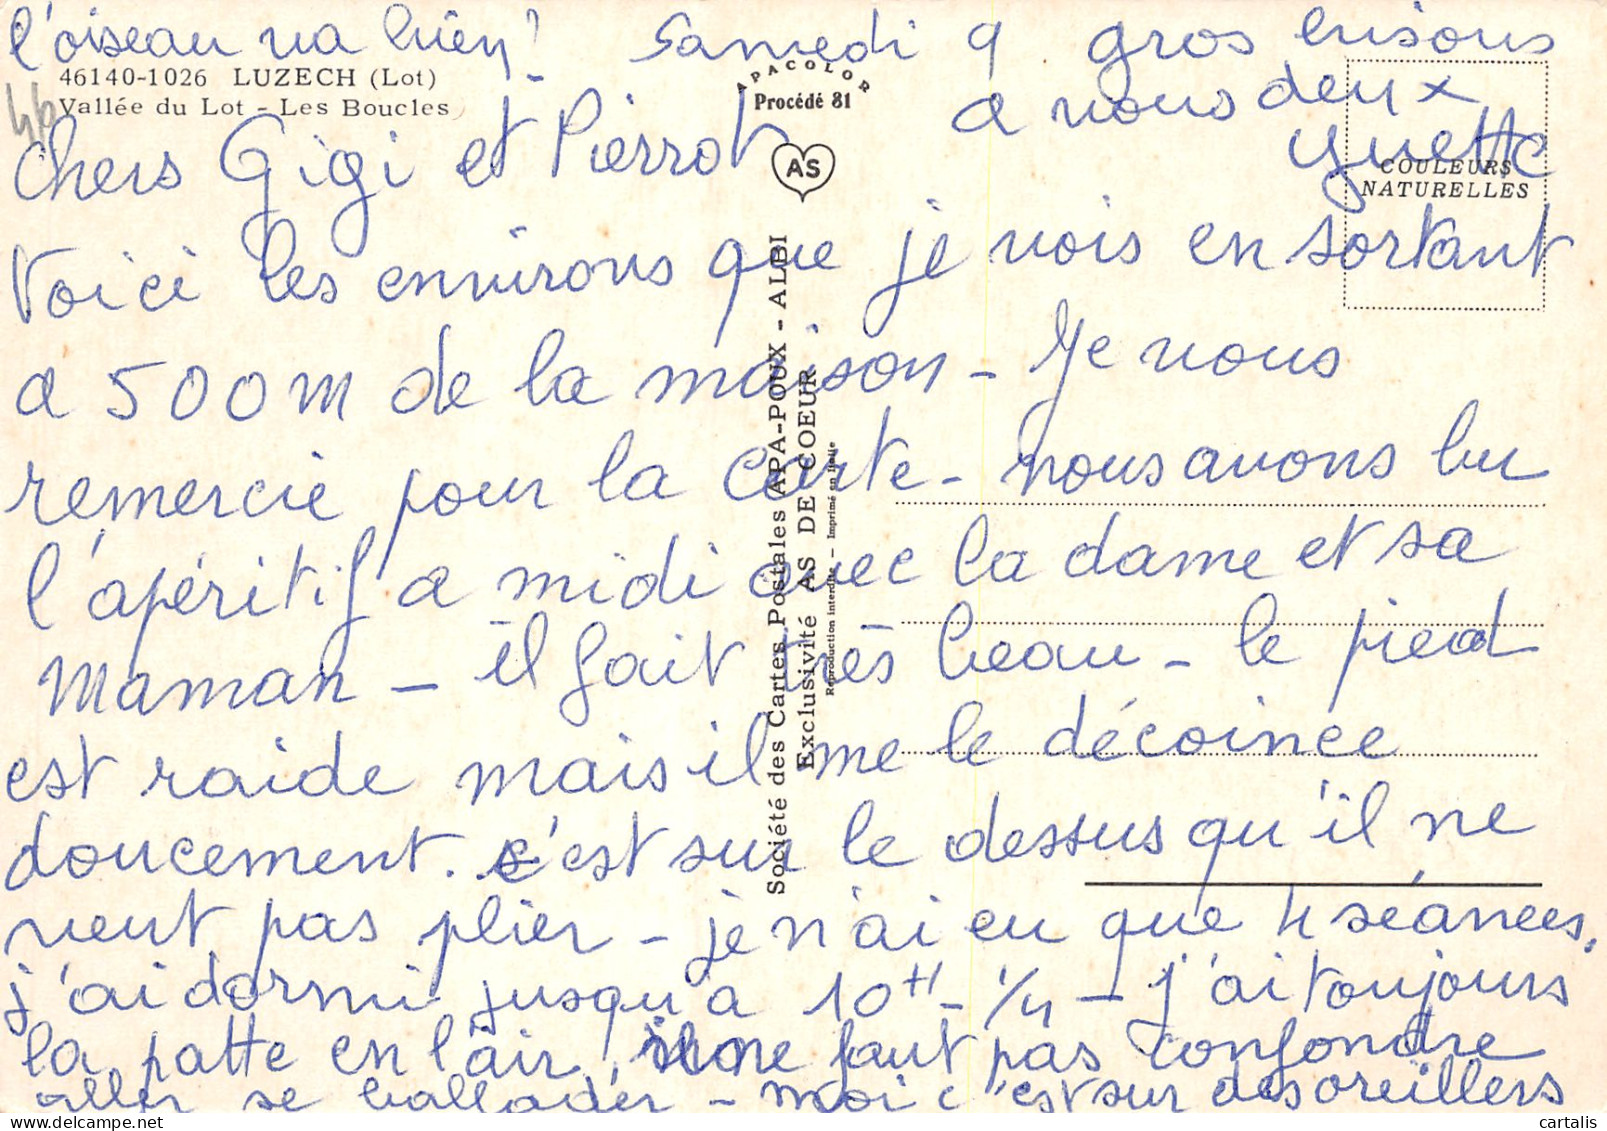 l'oiseau va bien! Samedi 9 gros bisous
a vous deux
Yvette
46140-1026 LUZECH (Lot)
Vallée du Lot - Les Boucles
46
APACOLOR
Procédé 81
AS
COULEURS
NATURELLES
Chers Gigi et Pierrot
Voici les environs que je vois en sortant
a 500 m de la maison - Je vous
remercie pour la carte - nous avons bu
l'apéritif a midi avec la dame et sa
Maman - il fait très beau - le pied
est raide mais il me le décoince
doucement. c'est sur le dessus qu'il ne
veut pas plier - je n'ai eu que 4 séances,
j'ai dormi jusqu'a 10H - 1/4 - j'ai toujours
la patte en l'air, il ne faut pas confondre
aller se ballader - moi c'est sur des oreillers
Société des Cartes Postales APA-POUX - ALBI
Exclusivité AS DE COEUR
Reproduction interdite - Imprimé en Italie
cartalis